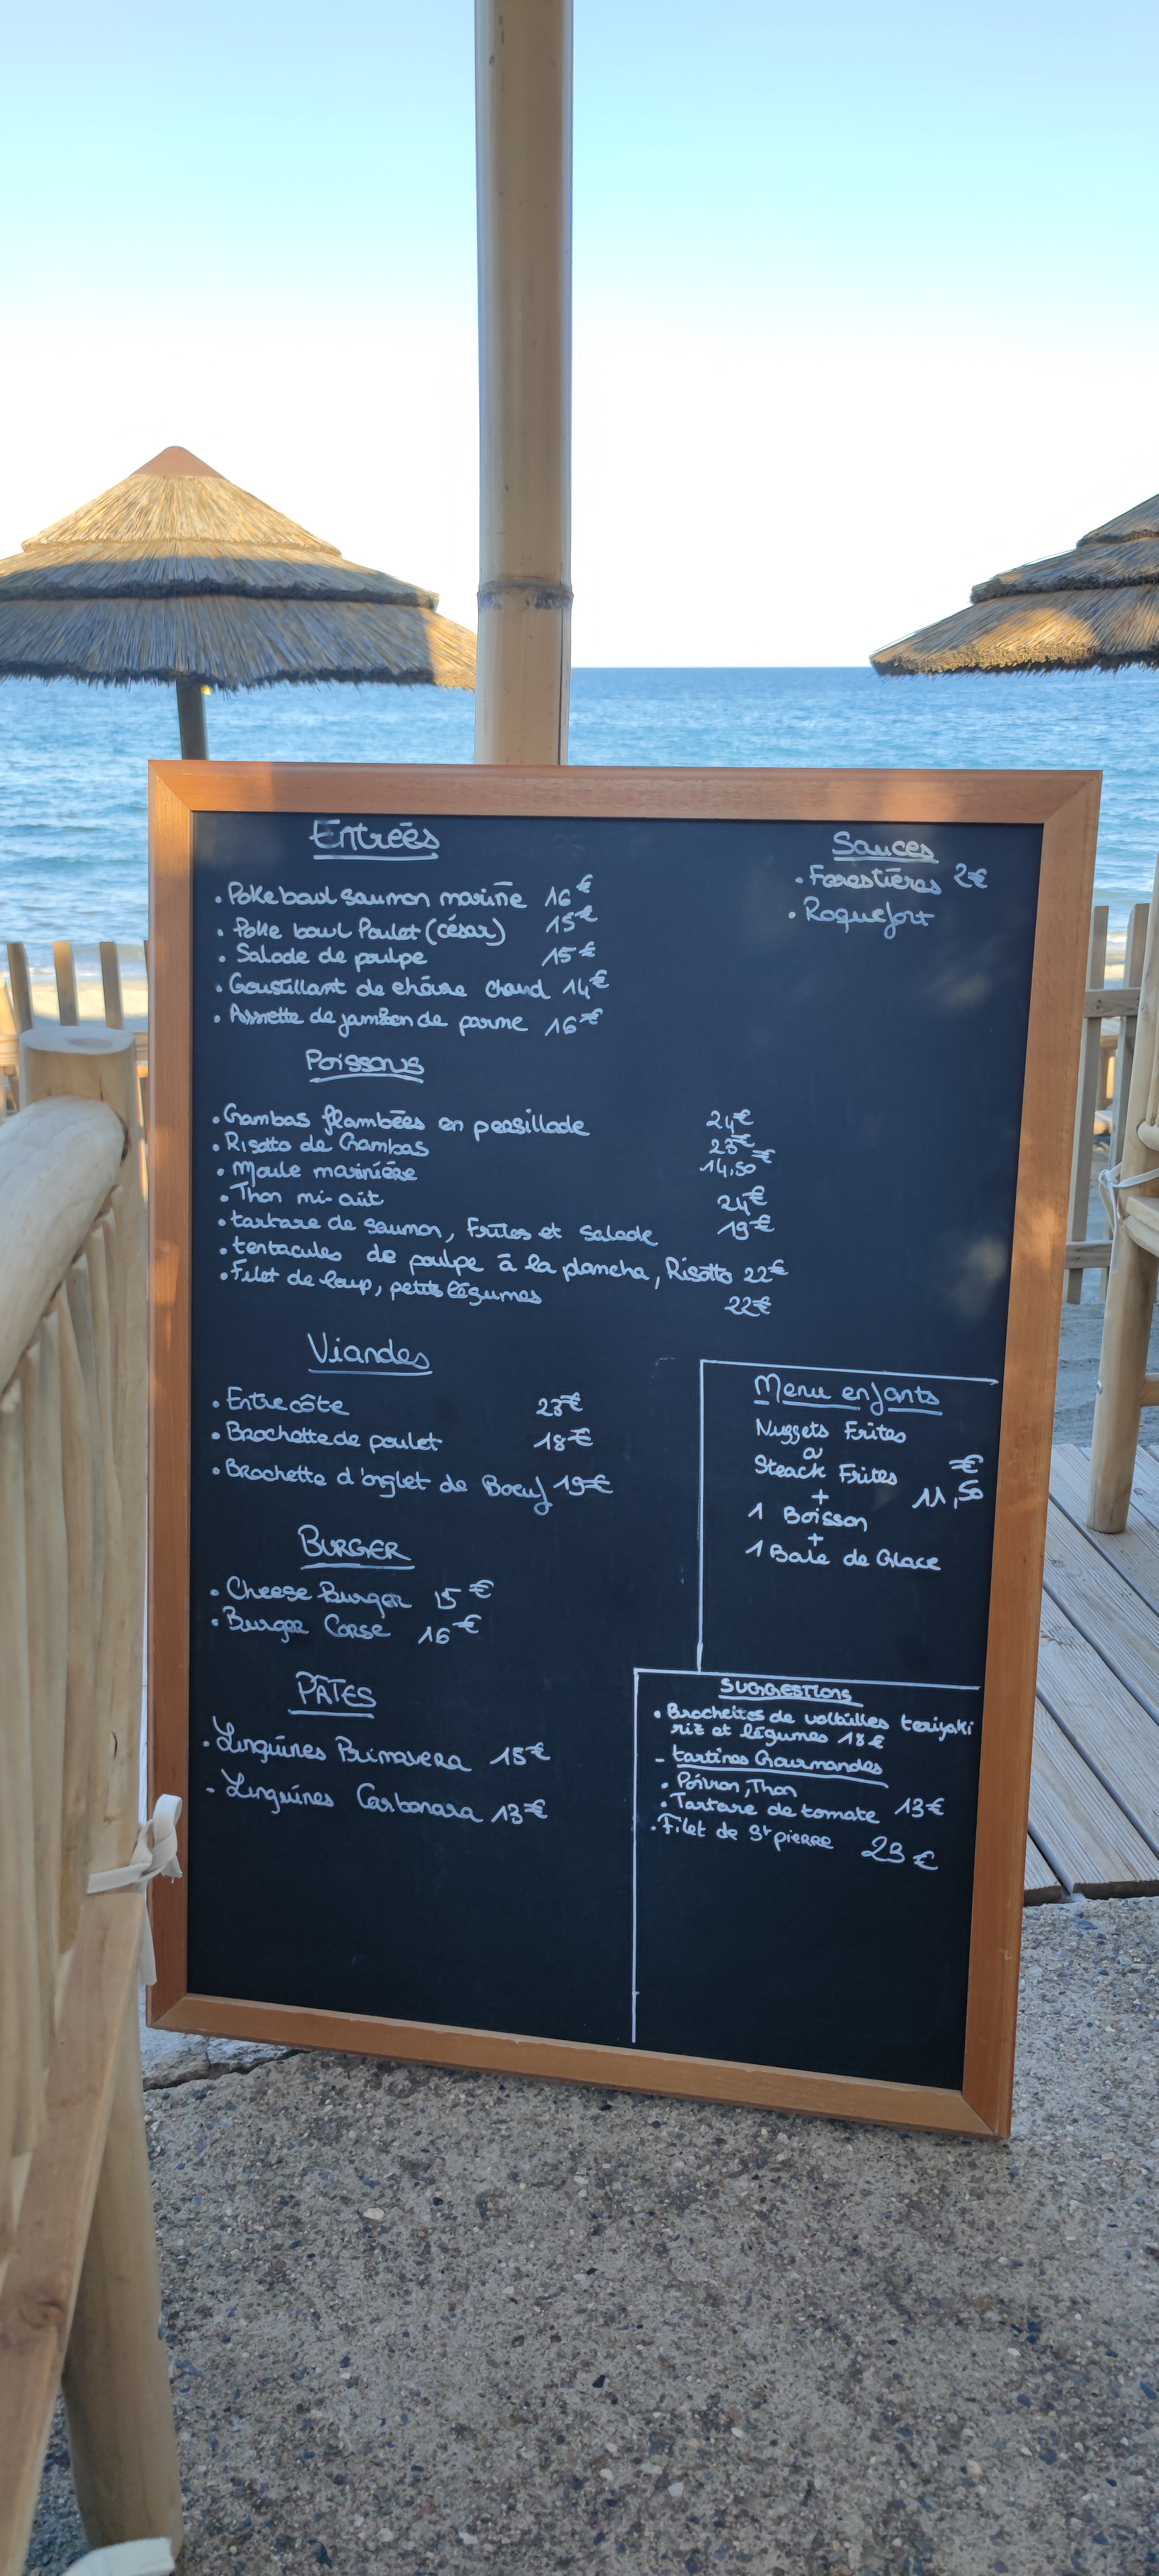 Entrées
• Poke bowl saumon mariné 16€
• Poke bowl Poulet (césar) 15€
• Salade de poulpe 15€
• Croustillant de chèvre chaud 14€
• Assiette de jambon de parme 16€
Poissons
• Gambas flambées en persillade 24€
• Risotto de Gambas 23€
• Moule marinière 14,50€
• Thon mi-cuit 24€
• tartare de saumon, Frites et salade 19€
• tentacules de poulpe à la plancha, Risotto 22€
• Filet de loup, petits légumes 22€
Viandes
• Entrecôte 23€
• Brochette de poulet 18€
• Brochette d'onglet de Boeuf 19€
BURGER
• Cheese Burger 15€
• Burger Corse 16€
PÂTES
• Linguines Primavera 15€
- Linguines Carbonara 13€
Sauces
• Forestières 2€
• Roquefort
Menu enfants
Nuggets Frites
ou
Steack Frites
+
11,50€
1 Boisson
+
1 Boule de Glace
SUGGESTIONS
• Brochettes de volailles teriyaki
riz et légumes 18€
- tartines Gourmandes
• Poivron, Thon
• Tartare de tomate 13€
• Filet de St pierre 23€